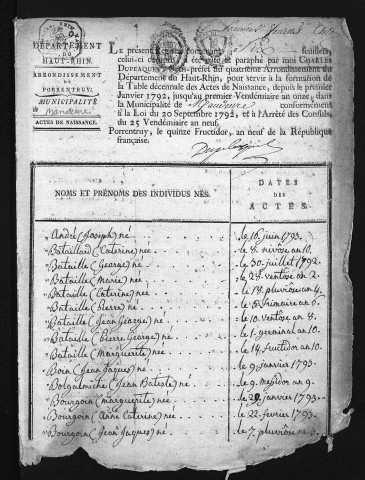 DÉPARTEMENT
DU
HAUT-RHIN.
ARRONDISSEMENT
DE
PORRENTRUY.
MUNICIPALITÉ
de Mandeure
ACTES DE NAISSANCE.
LE présent contenant feuillets,
celui-ci compris, a été coté et paraphé par moi CHARLES
DUPEAQUIER, Sous-préfet du quatrième Arrondissement du
Département du Haut-Rhin, pour servir à la formation de
la Table décennale des Actes de Naissance, depuis le premier
Janvier 1792, jusqu'au premier Vendémiaire an onze, dans
la Municipalité de Mandeure conformément
à la Loi du 20 Septembre 1792, et à l'Arrêté des Consuls,
du 25 Vendémiaire an neuf.
Porrentruy, le quinze Fructidor, an neuf de la République
française.
NOMS ET PRÉNOMS DES INDIVIDUS NÉS.
DATES
DES
ACTES.
André (Joseph) né le 16 juin 1793.
Bataillard (Caterine) née le 8 nivôse an 10.
Bataille (George) né le 30 juillet 1792.
Bataille (Marie) née le 23 ventôse an 2.
Bataille (Caterine) née le 18 pluviôse an 4.
Bataille (Pierre) né frimaire an 6.
Bataille (Jean George) né le 10 ventôse an 8.
Bataille (Pierre George) né le 1 germinal an 10.
Bataille (Marguerite) née le 14 fructidor an 10.
Boin (Jean Jaques) né le 9 janvier 1793.
(Jean Batiste) né le 9 messidor an 9.
Bourgoin (marguerite) née le 29 janvier 1793.
Bourgoin (Anne Caterine) née le 22 fevrier 1793.
Bourgoin (Jean Jaques) né le 7 pluviôse an